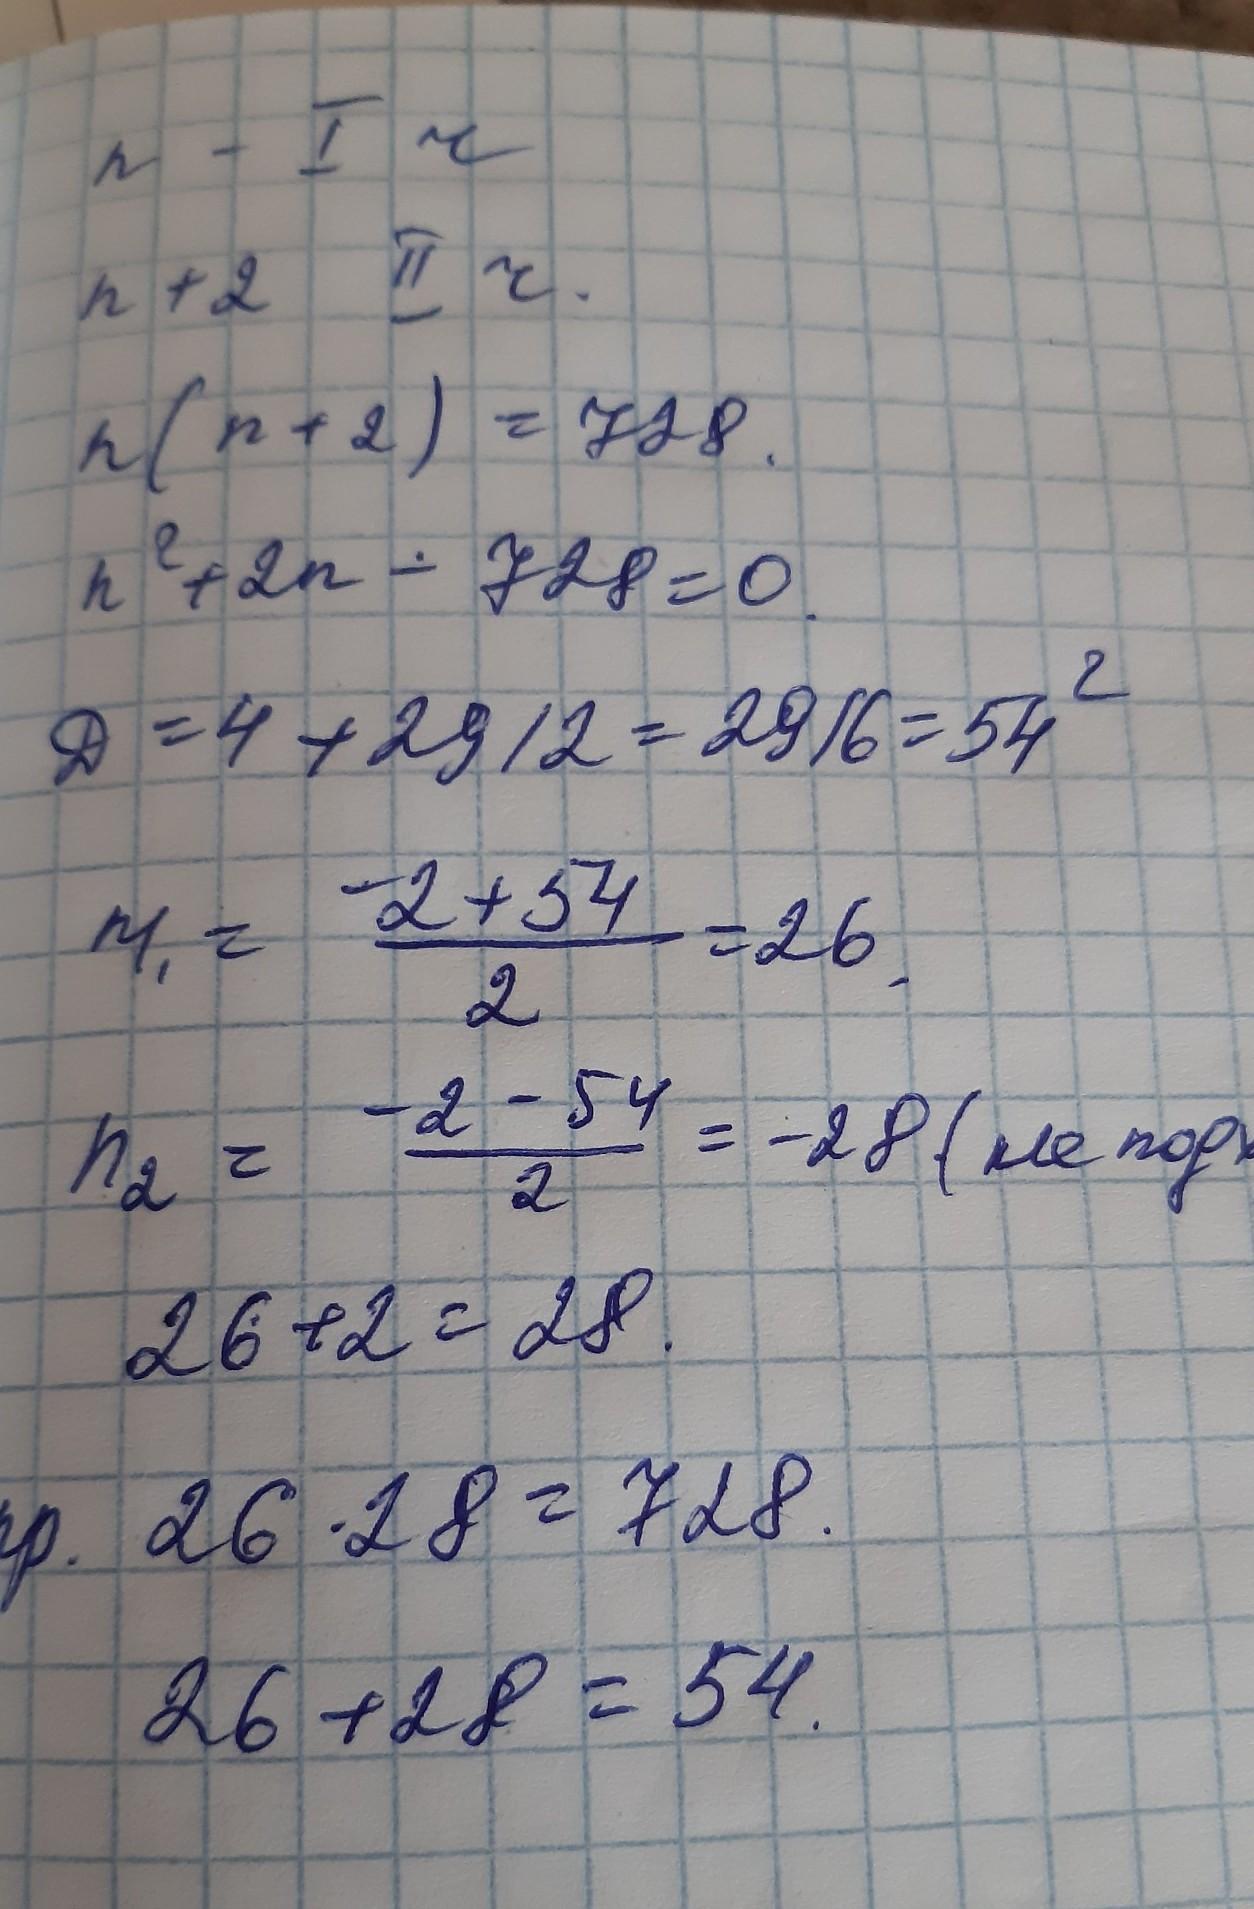 n - I ч
n+2 II ч.
n(n+2) = 728.
n²+2n - 728=0.
Д =4 +2912=2916=54²
n₁ = (-2+54)/2 =26.
n₂ = (-2 - 54)/2 = -28 (не подх
26+2= 28.
пр. 26·28=728.
26+28 = 54.